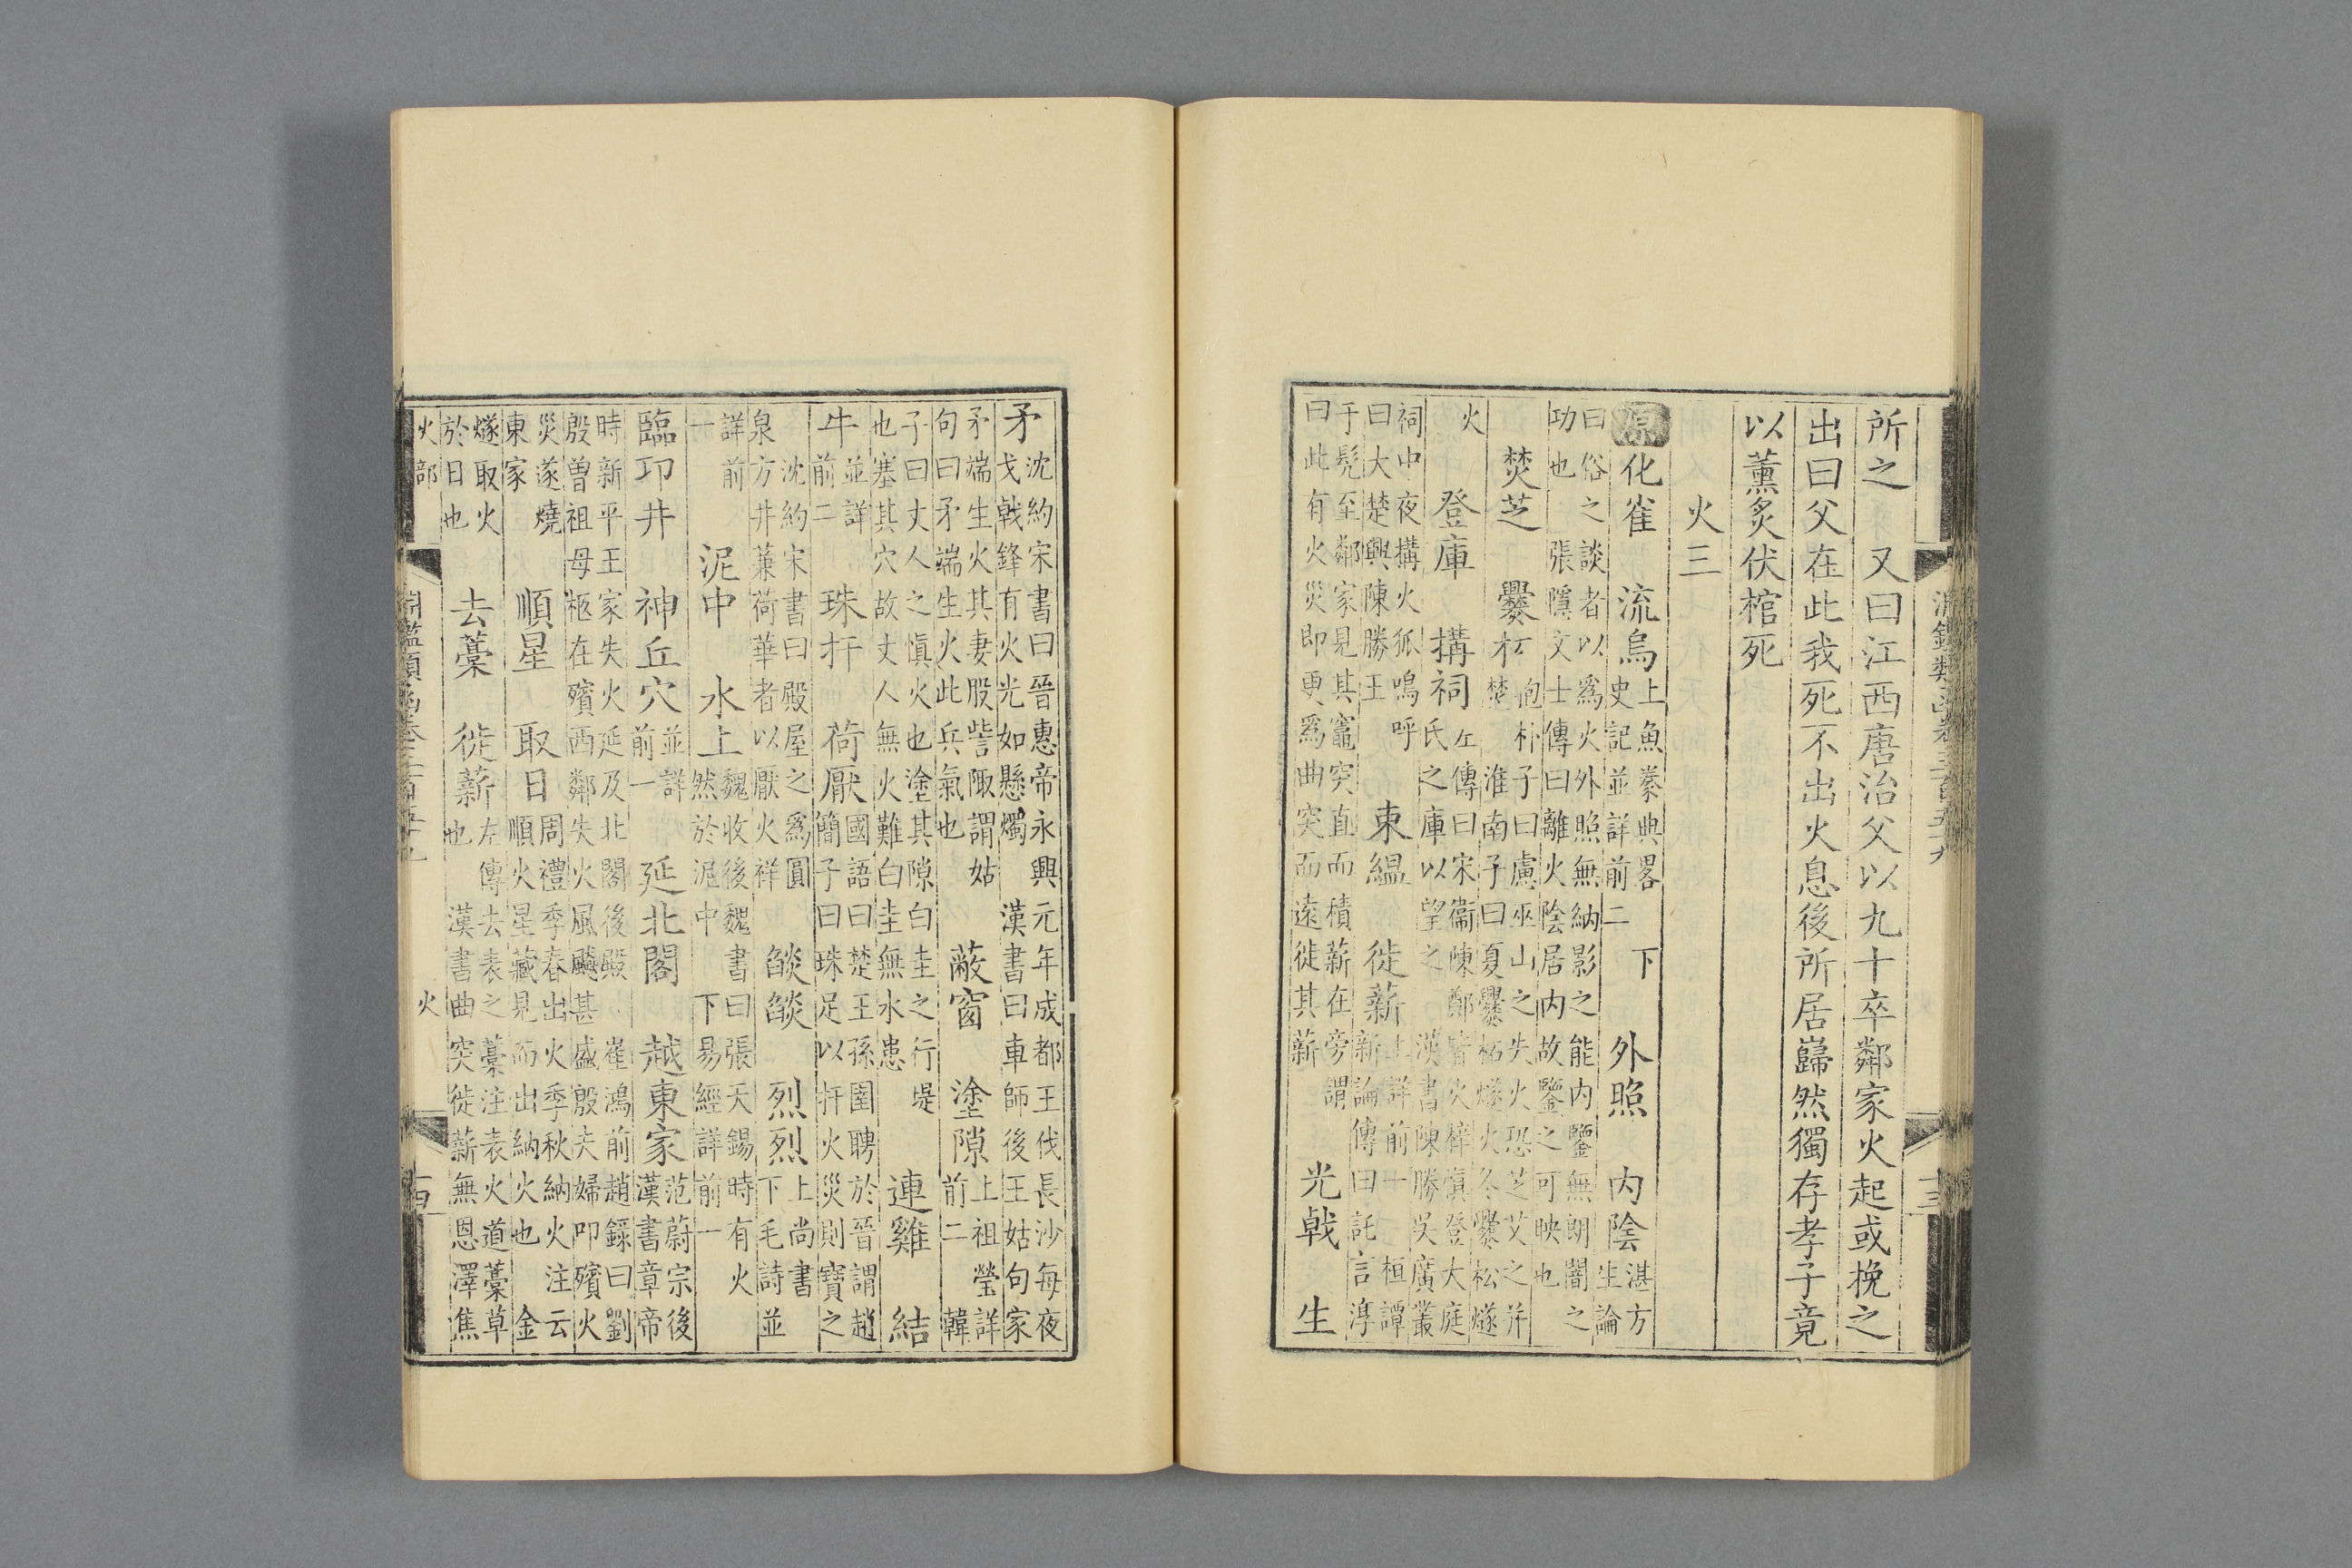 淵鑑類函卷三百五十九　十三
所之　又曰江西唐治父以九十卒鄰家火起或挽之
出曰父在此我死不出火息後所居巋然獨存孝子竟
以薰炙伏棺死
火三
原化雀　流烏　上魚豢典畧　下史記並詳前二　外照　内陰　湛方生論
曰俗之談者以爲火外照無納影之能内鑒無朗闇之功也　張隱文士傳曰離火陰居内故鑒之可映也
焚芝　爨柘　抱朴子曰慮巫山之失火恐芝艾之并焚　淮南子曰夏爨柘燧火冬爨松燧
火　登庫　搆祠　左傳曰宋衞陳鄭皆火梓慎登大庭氏之庫以望之　漢書陳勝吳廣叢
祠中夜搆火狐鳴呼曰大楚興陳勝王　束緼　徙薪　上詳前一　桓譚新論傳曰託言淳
于髡至鄰家見其竈突直而積薪在旁謂曰此有火災即更爲曲突而遠徙其薪　光戟　生
矛　沈約宋書曰晉惠帝永興元年成都王伐長沙每夜戈戟鋒有火光如懸燭　漢書曰車師後王姑句家
矛端生火其妻股訾陬謂姑句曰矛端生火此兵氣也　蔽窗　塗隙　上祖瑩詳前二　韓
子曰丈人之慎火也塗其隙白圭之行堤也塞其穴故丈人無火難白圭無水患　連雞　結
牛　並詳前二　珠扞　荷厭　國語曰楚王孫圉聘於晉謂趙簡子曰珠足以扞火災則寶之
沈約宋書曰殿屋之爲圓泉方井蒹荷華者以厭火祥　燄燄　烈烈　上尚書下毛詩並
詳前一　泥中　水上　魏收後魏書曰張天錫時有火然於泥中　下易經詳前一
臨卭井　神丘穴　並詳前一　延北閣　越東家　范蔚宗後漢書章帝
時新平王家失火延及北閣後殿　崔鴻前趙録曰劉殷曾祖母柩在殯西鄰失火風飈甚盛殷夫婦叩殯火
災遂燒東家　順星　取日　周禮季春出火季秋納火注云順火星藏見而出納火也　金
燧取火於日也　去藁　徙薪　左傳去表之藁注表火道藁草也　漢書曲突徙薪無恩澤焦
火部　淵鑑類函卷三百五十九　火　十四